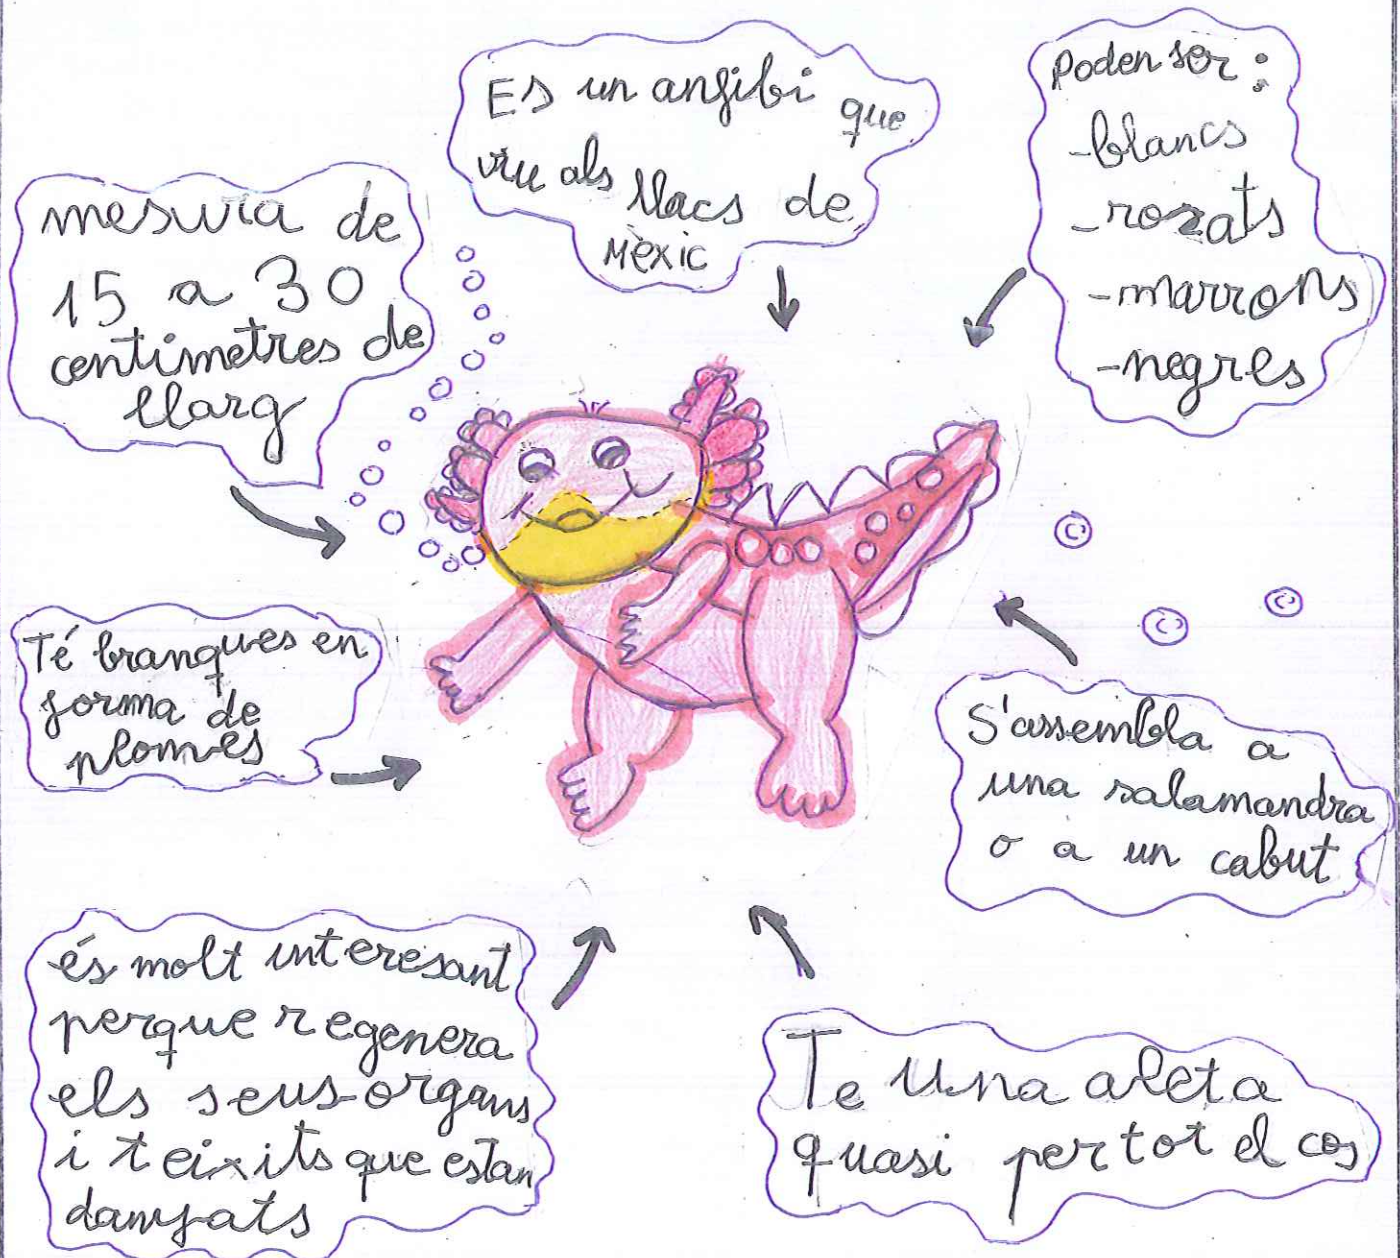 Es un anfibi que
viu als llacs de
Mèxic
Poden ser:
-blancs
-rozats
-marrons
-negres
mesura de
15 a 30
centimetres de
llarg
Té branques en
forma de
plomes
S'assembla a
una salamandra
o a un cabut
és molt interesant
perque regenera
els seus organs
i teixits que estan
danyats
Te una aleta
quasi per tot el cos